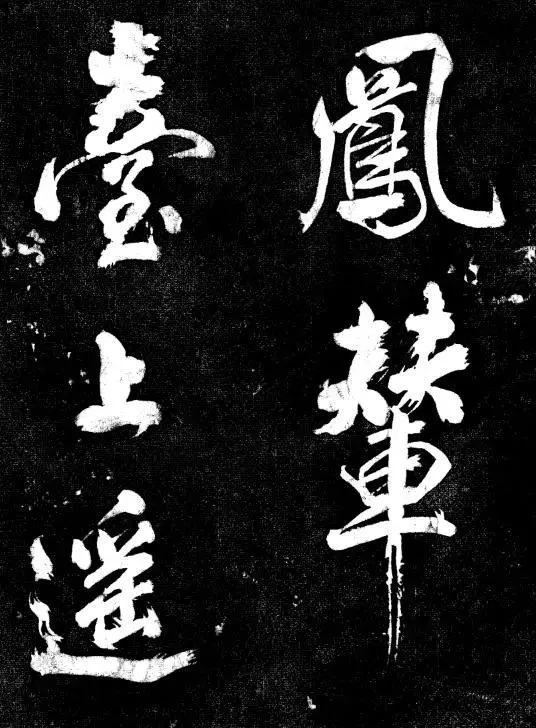 鳳輦
臺上遥